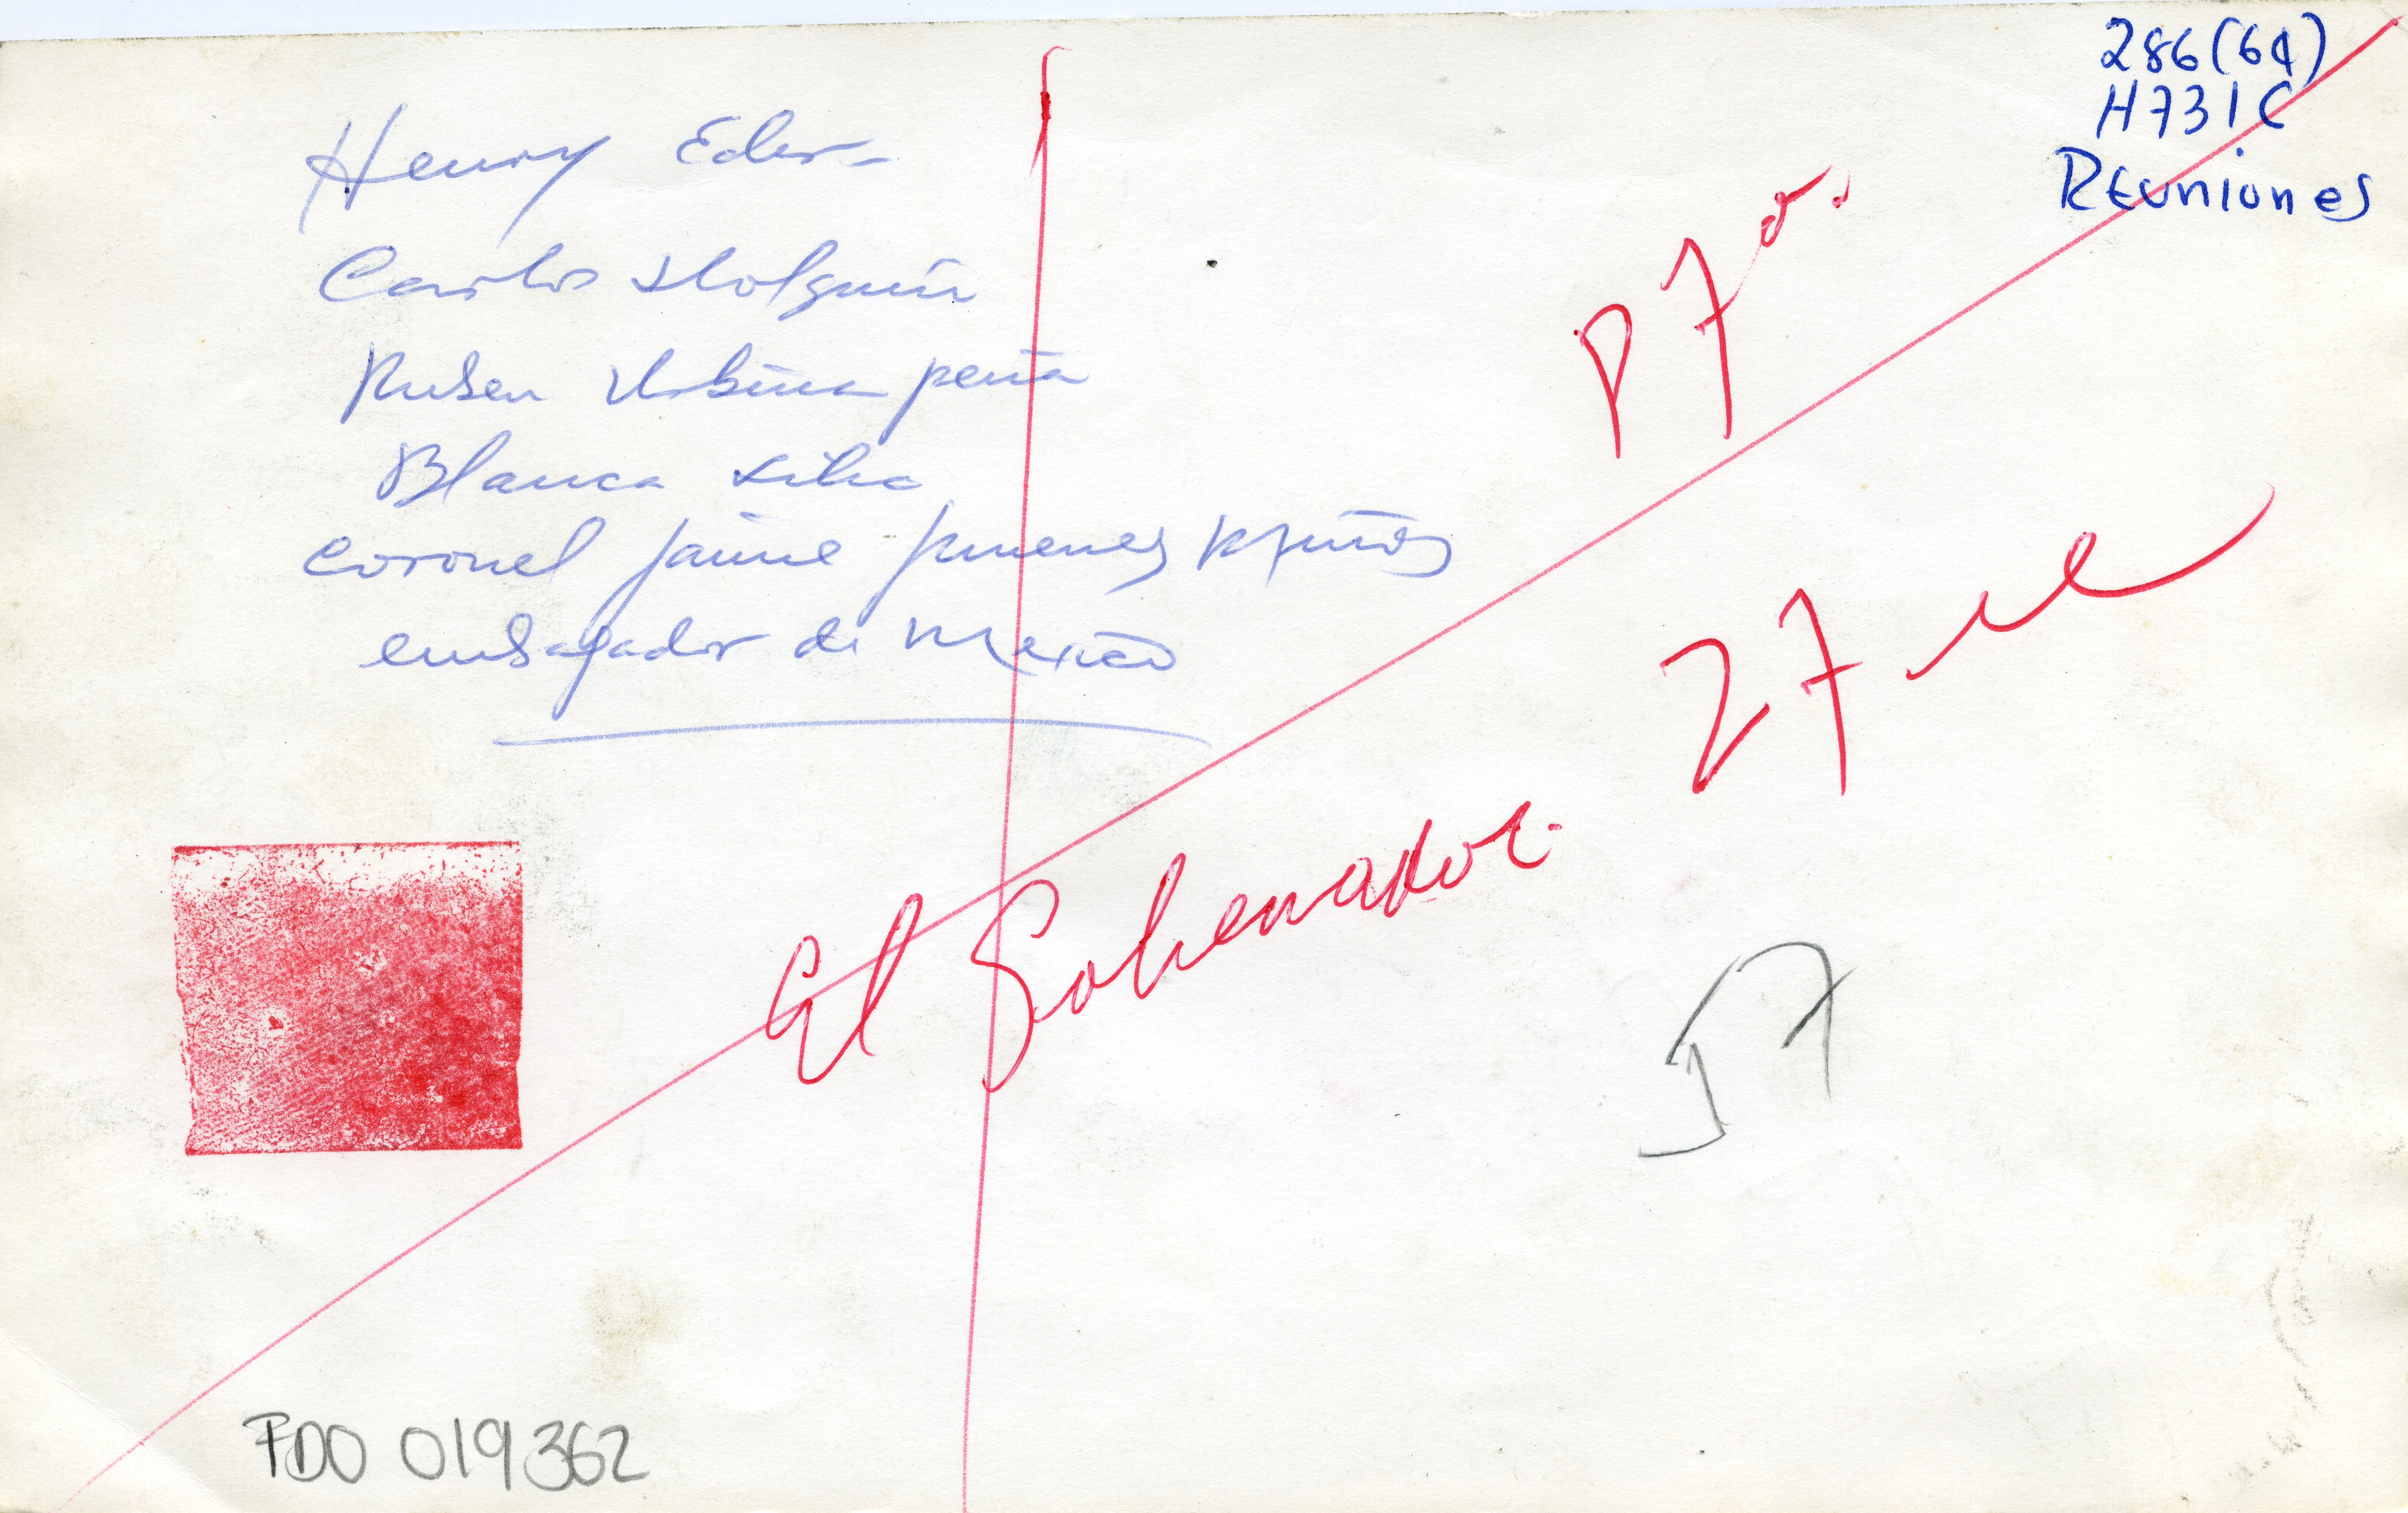 286(64)
H731C
Reuniones
Henry Eder
Carlos Holguin
Ruben Urbina peña
Blanca
Coronel Jaime Jimenez Muñoz
embagador de Mexico
P 7a.
27
El Gobernador
57
FDO 019362